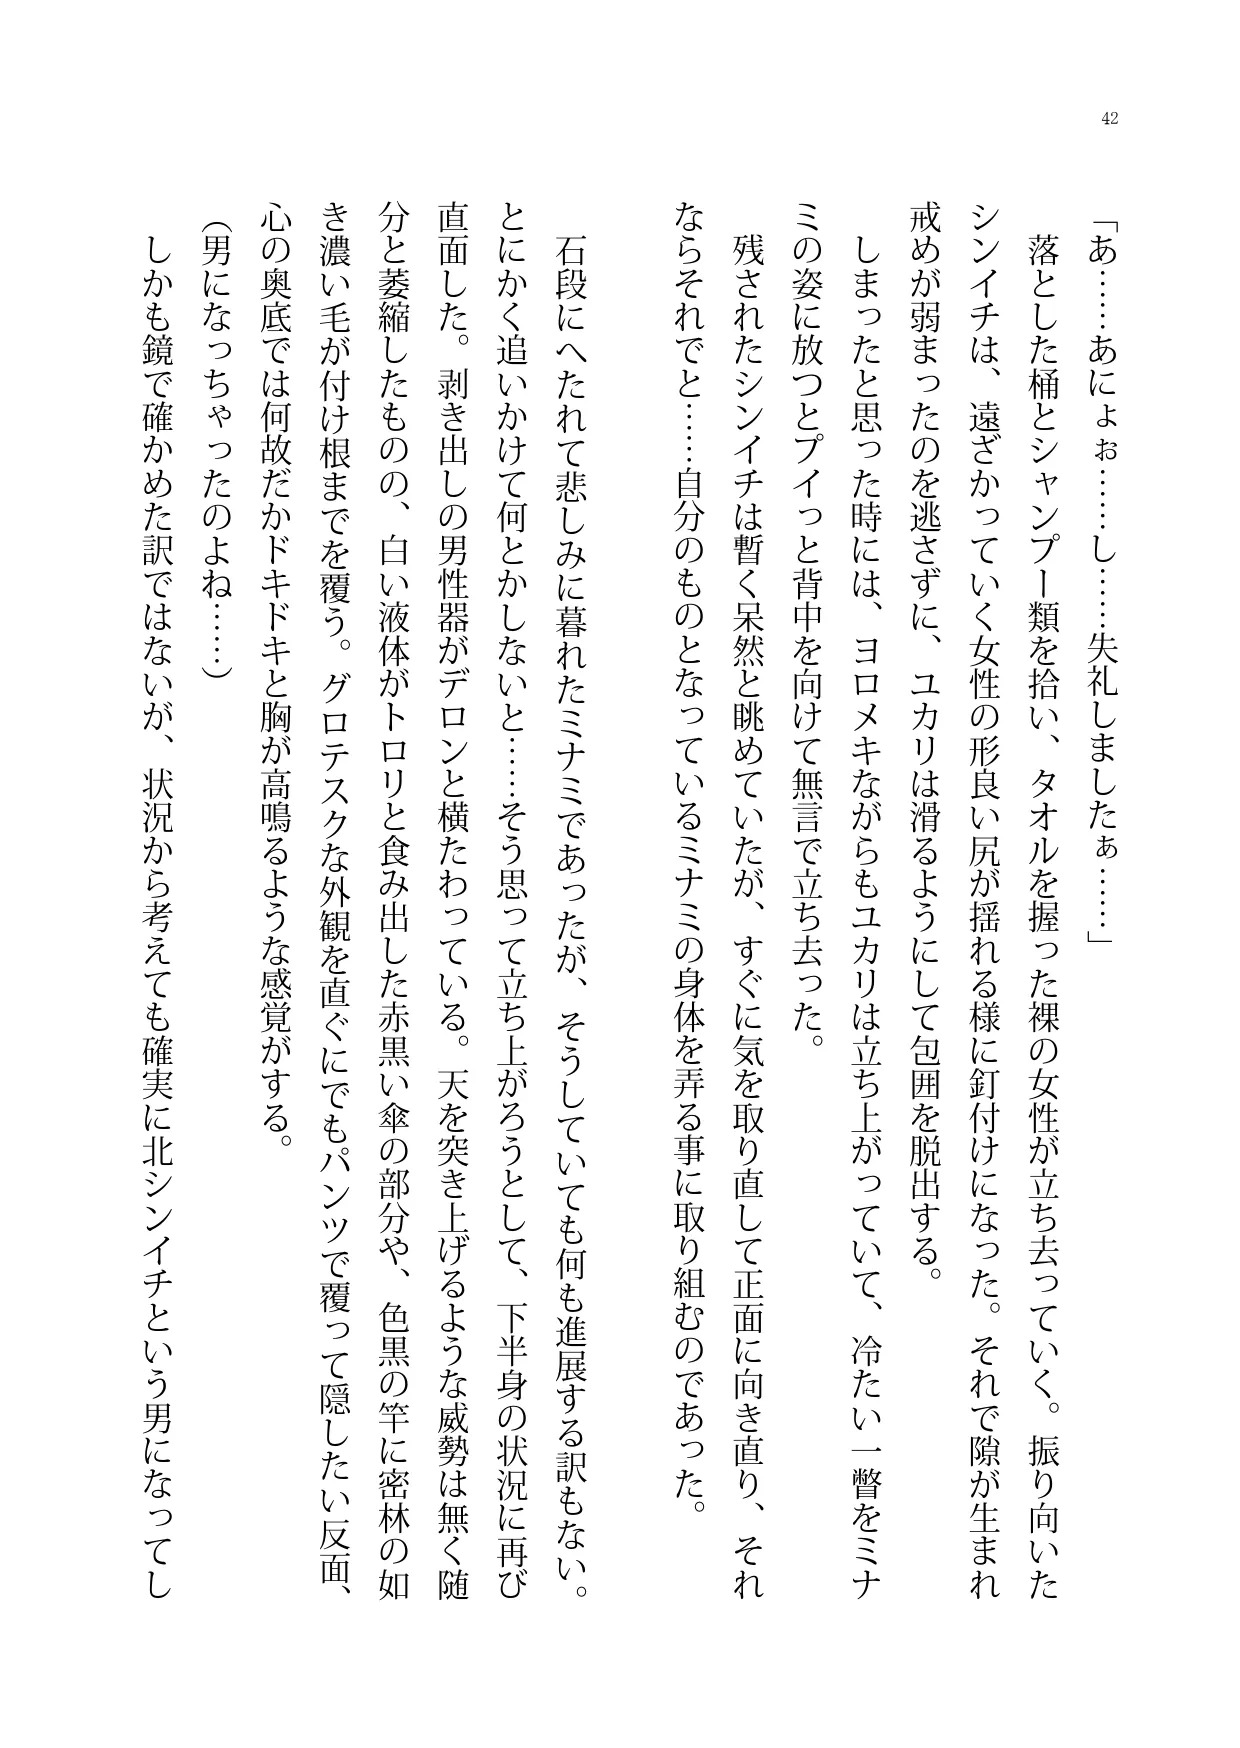 42
「あ……あにょぉ……し……失礼しましたぁ……」
　落とした桶とシャンプー類を拾い、タオルを握った裸の女性が立ち去っていく。振り向いた
シンイチは、遠ざかっていく女性の形良い尻が揺れる様に釘付けになった。それで隙が生まれ
戒めが弱まったのを逃さずに、ユカリは滑るようにして包囲を脱出する。
　しまったと思った時には、ヨロメキながらもユカリは立ち上がっていて、冷たい一瞥をミナ
ミの姿に放つとプイっと背中を向けて無言で立ち去った。
　残されたシンイチは暫く呆然と眺めていたが、すぐに気を取り直して正面に向き直り、それ
ならそれでと……自分のものとなっているミナミの身体を弄る事に取り組むのであった。
　石段にへたれて悲しみに暮れたミナミであったが、そうしていても何も進展する訳もない。
とにかく追いかけて何とかしないと……そう思って立ち上がろうとして、下半身の状況に再び
直面した。剥き出しの男性器がデロンと横たわっている。天を突き上げるような威勢は無く随
分と萎縮したものの、白い液体がトロリと食み出した赤黒い傘の部分や、色黒の竿に密林の如
き濃い毛が付け根までを覆う。グロテスクな外観を直ぐにでもパンツで覆って隠したい反面、
心の奥底では何故だかドキドキと胸が高鳴るような感覚がする。
（男になっちゃったのよね……）
　しかも鏡で確かめた訳ではないが、状況から考えても確実に北シンイチという男になってし